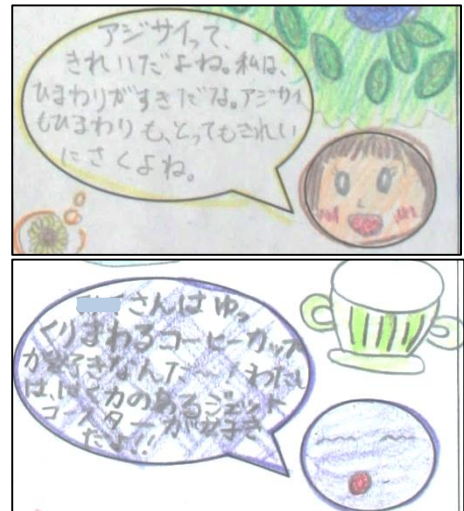 アジサイって、
きれいだよね。私は、
ひまわりがすきだな。アジサイ
もひまわりも、とってもきれい
にさくよね。
さんはゆっ
くりまわるコーヒーカップ
が好きなんだ〜!わたし
は、はく力のあるジェット
コースターが好き
だよ!!